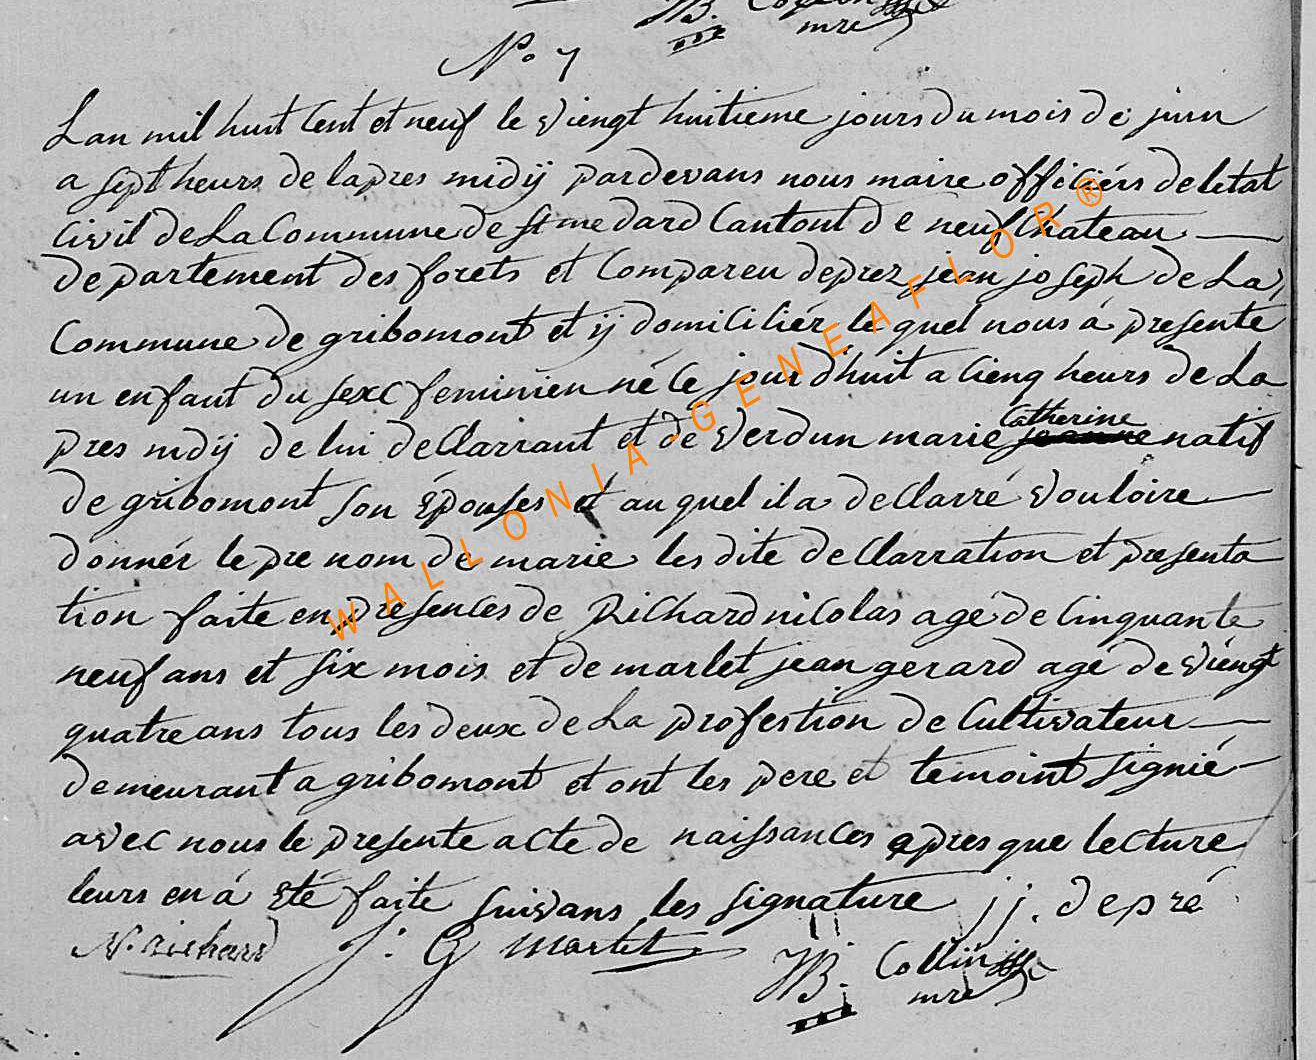 JB. Collin
mre
No 7
Lan mil huit Cent et neuf le viengt huitieme jours du mois de juin
a sept heurs de lapres midÿ pardevans nous maire officiérs deletat
Civil de La Commune de St medard Cantont de neufChateau
departement des forets et Compareu deprez jean joseph de La
Commune de gribomont et ÿ domiciliér le quel nous á presente
un enfant du sexe feminien né Ce jour d'huit a Cienq heurs de La
pres mdÿ de lui deClarrant et de verdun marie Catherine jeanne natif
de gribomont son épouses et au quel il a deClarré vouloire
donnér le pre nom de marie les dite deClarration et presenta
tion faite en presences de Richard nicolas agé de Cinquante
neuf ans et six mois et de marlet jean gerard agé de viengt
quatre ans tous les deux de La profestion de Cultivateur
demeurant a gribomont et ont les pere et temoint signié
avec nous le presente acte de naissances apres que lecture
leurs en á eté faite suivans les signature jj. depré
N. Richard J. G marlet JB. Collin
mre
WALLONIA-GENEAFLOR®